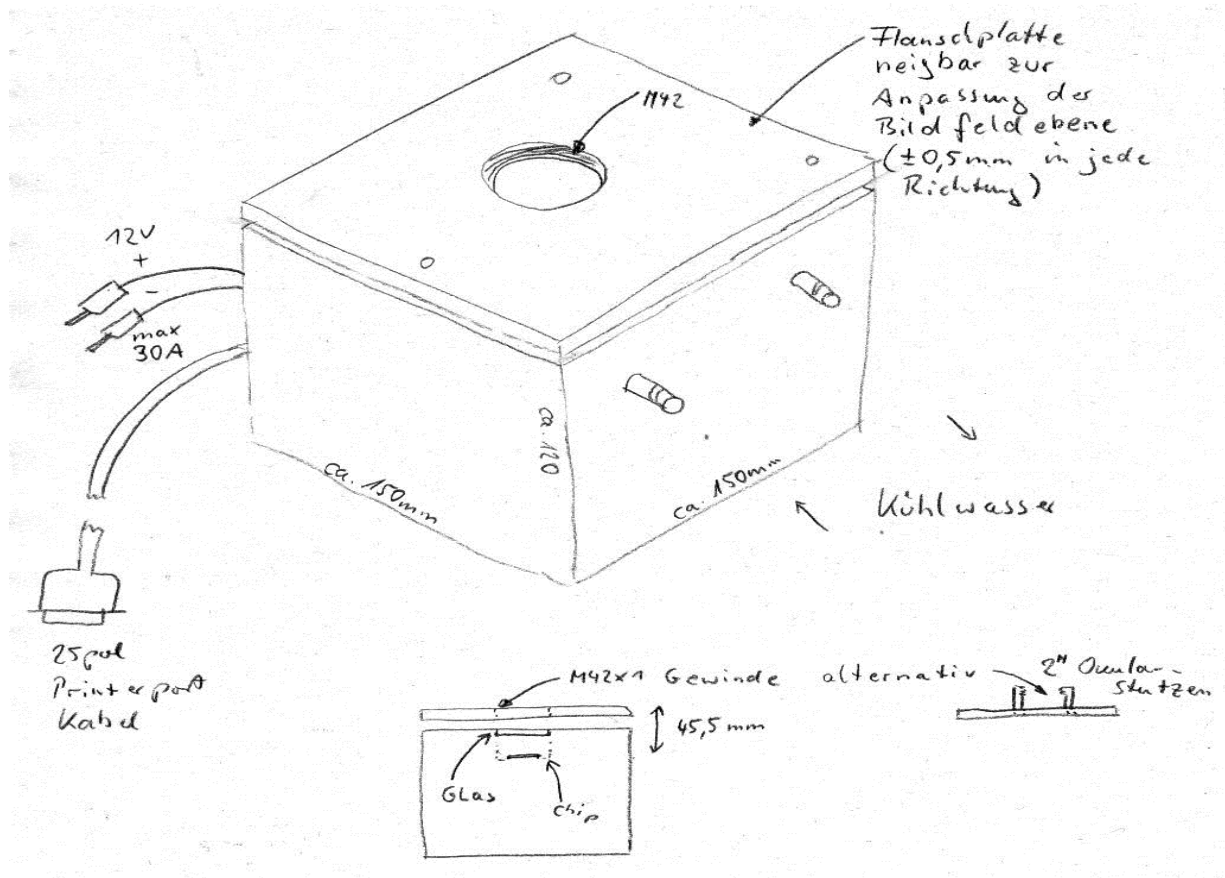 Flanschplatte
neigbar zur
Anpassung der
Bildfeldebene
(±0,5mm in jede
Richtung)
M42
12V
+
-
max
30A
ca. 120
ca. 150mm
ca. 150mm
Kühlwasser
25pol
Printerport
Kabel
M42x1 Gewinde alternativ 2" Okular-
stutzen
45,5 mm
Glas
chip